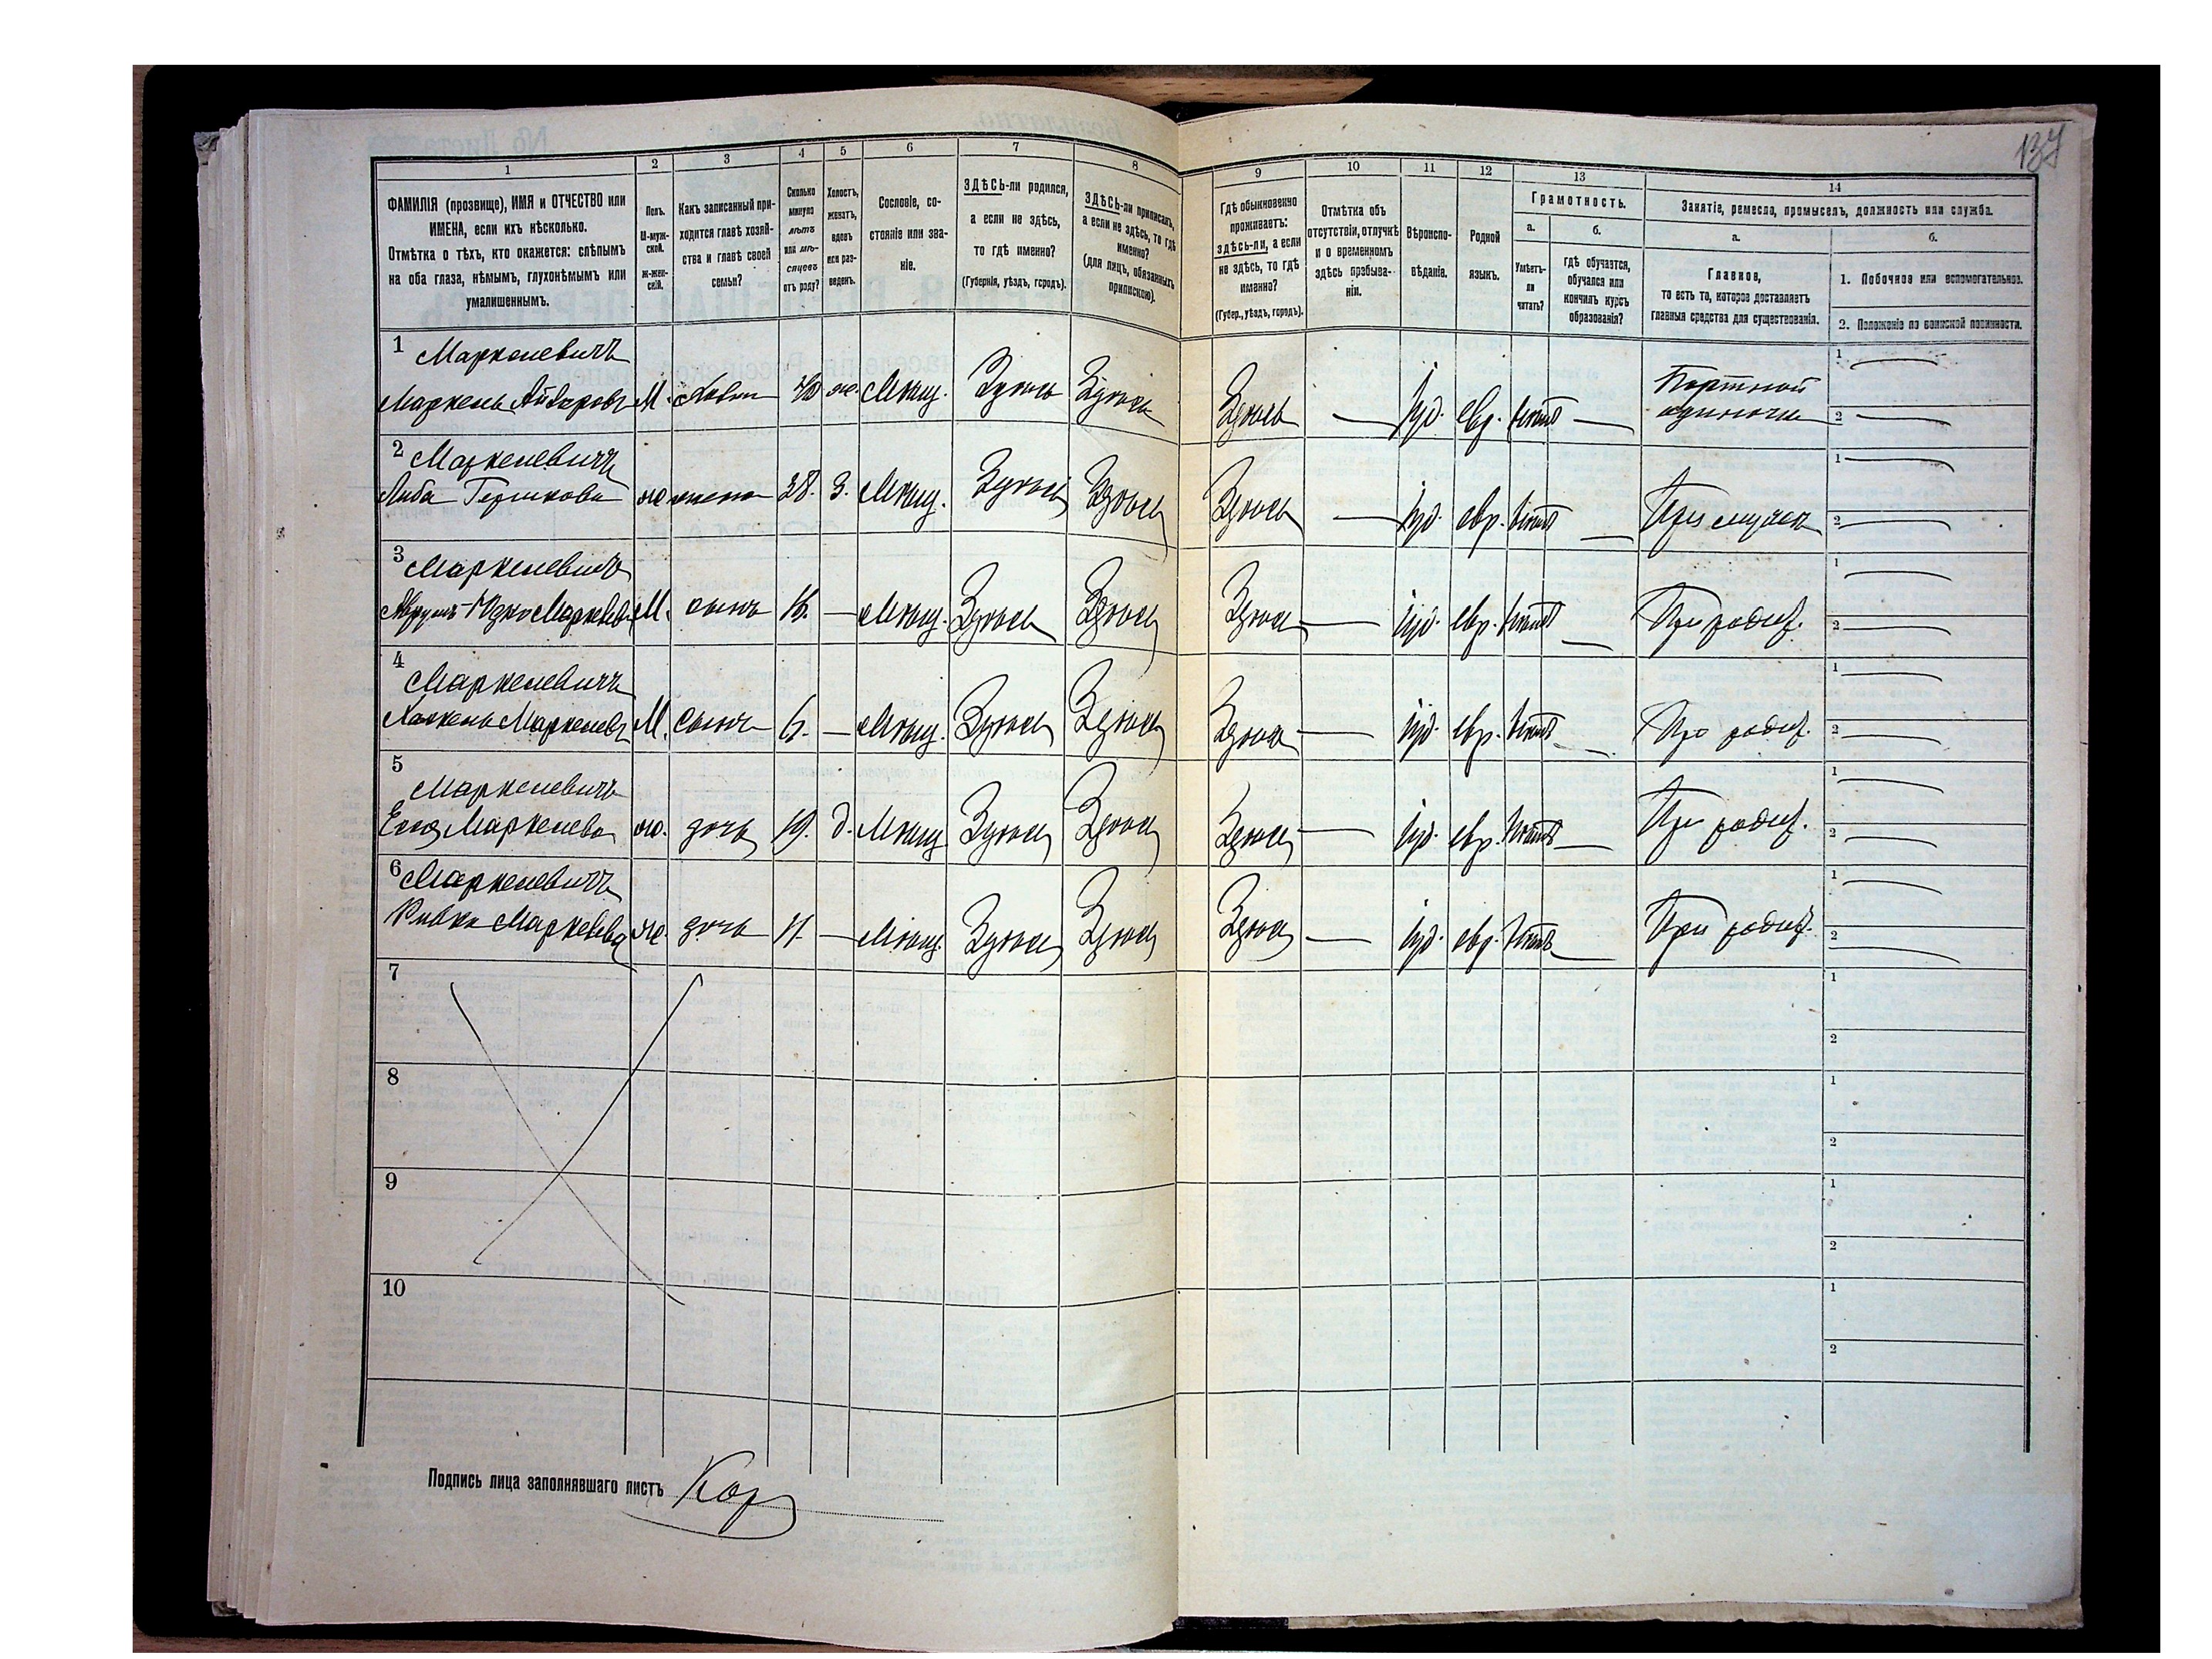 137
1
2
3
4
5
6
7
8
9
10
11
12
13
14
ФАМИЛІЯ (прозвище), ИМЯ и ОТЧЕСТВО или
ИМЕНА, если ихъ нѣсколько.
Отмѣтка о тѣхъ, кто окажется: слѣпымъ
на оба глаза, нѣмымъ, глухонѣмымъ или
умалишеннымъ.
Полъ.
М-муж-
ской.
Ж-жен-
скій.
Какъ записанный при-
ходится главѣ хозяй-
ства и главѣ своей
семьи?
Сколько
минуло
лѣтъ
или мѣ-
сяцевъ
отъ роду?
Холостъ,
женатъ,
вдовъ
или раз-
веденъ.
Сословіе, со-
стояніе или зва-
ніе.
ЗДѢСЬ-ли родился,
а если не здѣсь,
то гдѣ именно?
(Губернія, уѣздъ, городъ).
ЗДѢСЬ-ли приписанъ,
а если не здѣсь, то гдѣ
именно?
(для лицъ, обязанныхъ
припискою).
Гдѣ обыкновенно
проживаетъ:
здѣсь-ли, а если
не здѣсь, то гдѣ
именно?
(Губер., уѣздъ, городъ).
Отмѣтка объ
отсутствіи, отлучкѣ
и о временномъ
здѣсь пребыва-
ніи.
Вѣроиспо-
вѣданіе.
Родной
языкъ.
Грамотность.
а.
Умѣетъ-
ли
читать?
б.
гдѣ обучается,
обучался или
кончилъ курсъ
образованія?
Занятіе, ремесло, промыселъ, должность или служба.
а.
Главное,
то есть то, которое доставляетъ
главныя средства для существованія.
б.
1. Побочное или вспомогательное.
2. Положеніе по воинской повинности.
1 Маркелевичъ
Маркель М. 40 ж. Мѣщ. Здѣсь Здѣсь Здѣсь — іуд. евр. нѣтъ — Портной
одиночка
1 —
2 —
2 Маркелевичъ
Либа Гершкова ж жена 38. З. Мѣщ. Здѣсь Здѣсь Здѣсь — іуд. евр. нѣтъ — При мужѣ
1 —
2 —
3 Маркелевичъ
М. сынъ 16. — Мѣщ. Здѣсь Здѣсь Здѣсь — іуд. евр. нѣтъ — При родит.
1 —
2 —
4 Маркелевичъ
Маркелевъ М. сынъ 6. — Мѣщ. Здѣсь Здѣсь Здѣсь — іуд. евр. нѣтъ — При родит.
1 —
2 —
5 Маркелевичъ
Маркелева ж. дочь 19. д. Мѣщ. Здѣсь Здѣсь Здѣсь — іуд. евр. нѣтъ — При родит.
1 —
2 —
6 Маркелевичъ
Ривка Маркелева ж. дочь 11. — Мѣщ. Здѣсь Здѣсь Здѣсь — іуд. евр. нѣтъ — При родит.
1 —
2 —
7
1
2
8
1
2
9
1
2
10
1
2
Подпись лица заполнявшаго листъ